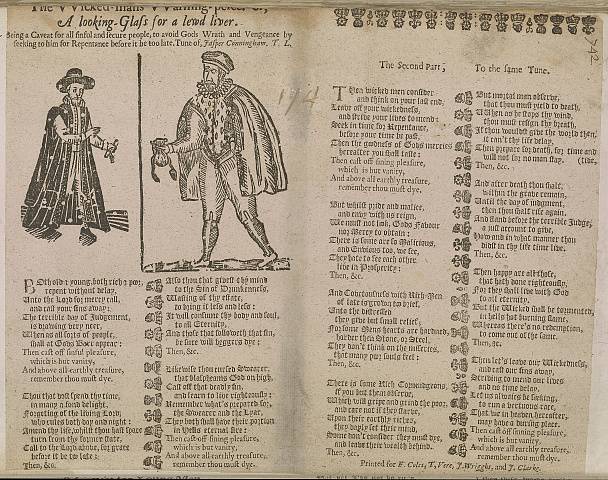 The Wicked-mans Warning-peice, Or,
A looking-Glass for a lewd liver.
Being a Caveat for all sinful and secure people, to avoid Gods Wrath and Vengeance by
seeking to him for Repentance before it be too late. Tune of, Jasper Cunningham. T. L.
BOth old & young, both rich & poor,
repent without delay,
Unto the Lord for mercy call,
and cast your sins away:
The terrible day of Judgement,
is drawing very near,
When as all sorts of people,
shall at Gods Barr appear:
Then cast off sinful pleasure,
which is but vanity,
And above all earthly treasure,
remember thou must dye.
Thou that dost spend thy time,
in many a fond delight,
Forgetting of the living Lord,
who rules both day and night:
Amend thy life, whilst thou hast space
turn from thy former state,
Call to the Lord above, for grace
before it be too late:
Then, &c.
Also thou that givest thy mind
to the Sin of Drunkenness,
Wasting of thy estate,
to bring it less and less:
It will consume thy body and soul,
to all Eternity,
And these that followeth that sin,
be sure will beggers dye:
Then, &c.
Likewise thou cursed Swearer,
that blasphemes God on high,
Cast off that deadly sin,
and learn to live righteously:
Remember what's prepared for,
the Swearer and the Lyar,
They both shall have their portion
in Hells eternal fire:
Then cast off sinning pleasure,
which is but vanity,
And above all earthly treasure,
remember thou must dye.
The Second Part, To the same Tune.
THen wicked men consider
and think on your last end,
Leave off your wickedness,
and strive your lives to mend:
Seek in time for Repentance,
before your time be past,
Then the goodness of Gods mercies
hereafter you shall taste:
Then cast off sining pleasure,
which is but vanity,
And above all earthly treasure,
remember thou must dye.
But whilst pride and malice,
and envy with us reign,
We must not look, Gods Favour
nor Mercy to obtain:
There is some are so Malicious,
and Envious too, we see,
They hate to see each other
live in Prosperity:
Then, &c.
And Covetousness with Rich-Men
of late is grown so brief,
Unto the distressed
they give but small relief,
For some Mens hearts are hardned,
harder then Stone, or Steel,
They don't think on the miseries,
that many poor souls feel:
Then, &c.
There is some Rich Cormudgeons,
if you but them observe,
Which will gripe and grind the poor,
and care not if they starve,
Upon their earthly riches,
they dayly set their mind,
Some don't consider they must dye,
and leave their wealth behind.
Then, &c.
But mortal man observe,
that thou must yield to death,
When as he stops thy wind,
thou must resign thy breath,
If thou wouldst give the world then,
it can't thy life delay,
Then prepare for death, for time and
will not for no man stay. (tide,
Then, &c.
And after death thou shalt,
within the grave remain,
Until the day of judgment,
then thou shalt rise again,
And stand before the terrible Judge,
a just account to give,
How and in what manner thou
didst in thy life time live.
Then, &c.
Then happy are all those,
that hath done righteously,
For they shall live with God
to all eternity,
But the Wicked shall be tormented,
in hells hot burning flame,
Whereas there's no redemption,
to come out of the same.
Then, &c.
Then let's leave our Wickedness,
and cast our sins away,
Striving to mend our lives
and no time delay,
Let us always be seeking,
to run a vertuous race,
That we in heaven hereafter,
may have a dwelling place.
Then cast off sinning pleasure,
which is but vanity,
And above all earthly treasure,
remember thou must dye.
Printed for F. Coles, T. Vere, J. Wright, and J. Clarke.